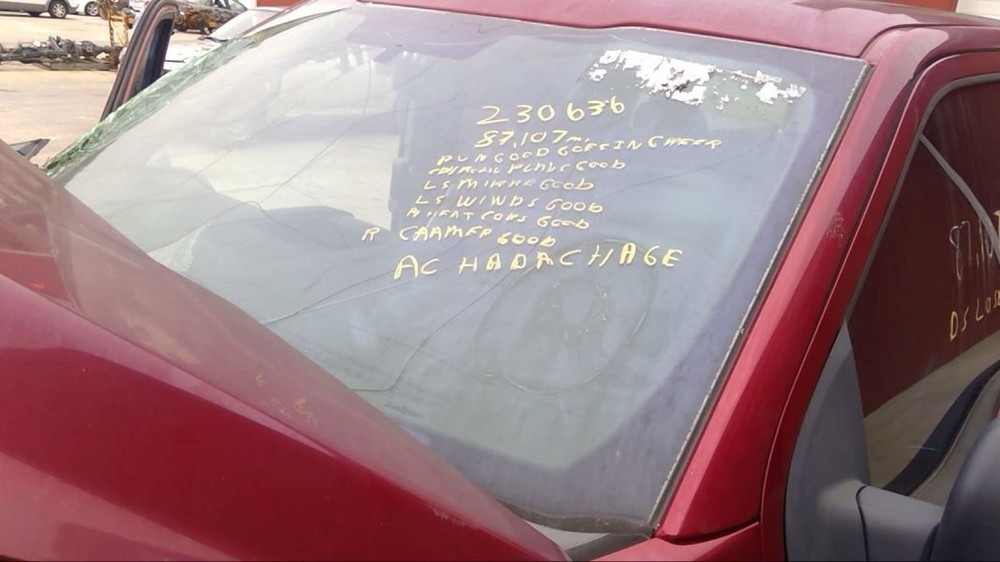 230636
87,107 mi
RUN GOOD GOES IN GHEER
GOOD
LS MIRRE GOOD
LS WINDS GOOD
A HEAT CONS GOOD
R CAAMER GOOD
AC HADA CHAGE
87,10
DS LO